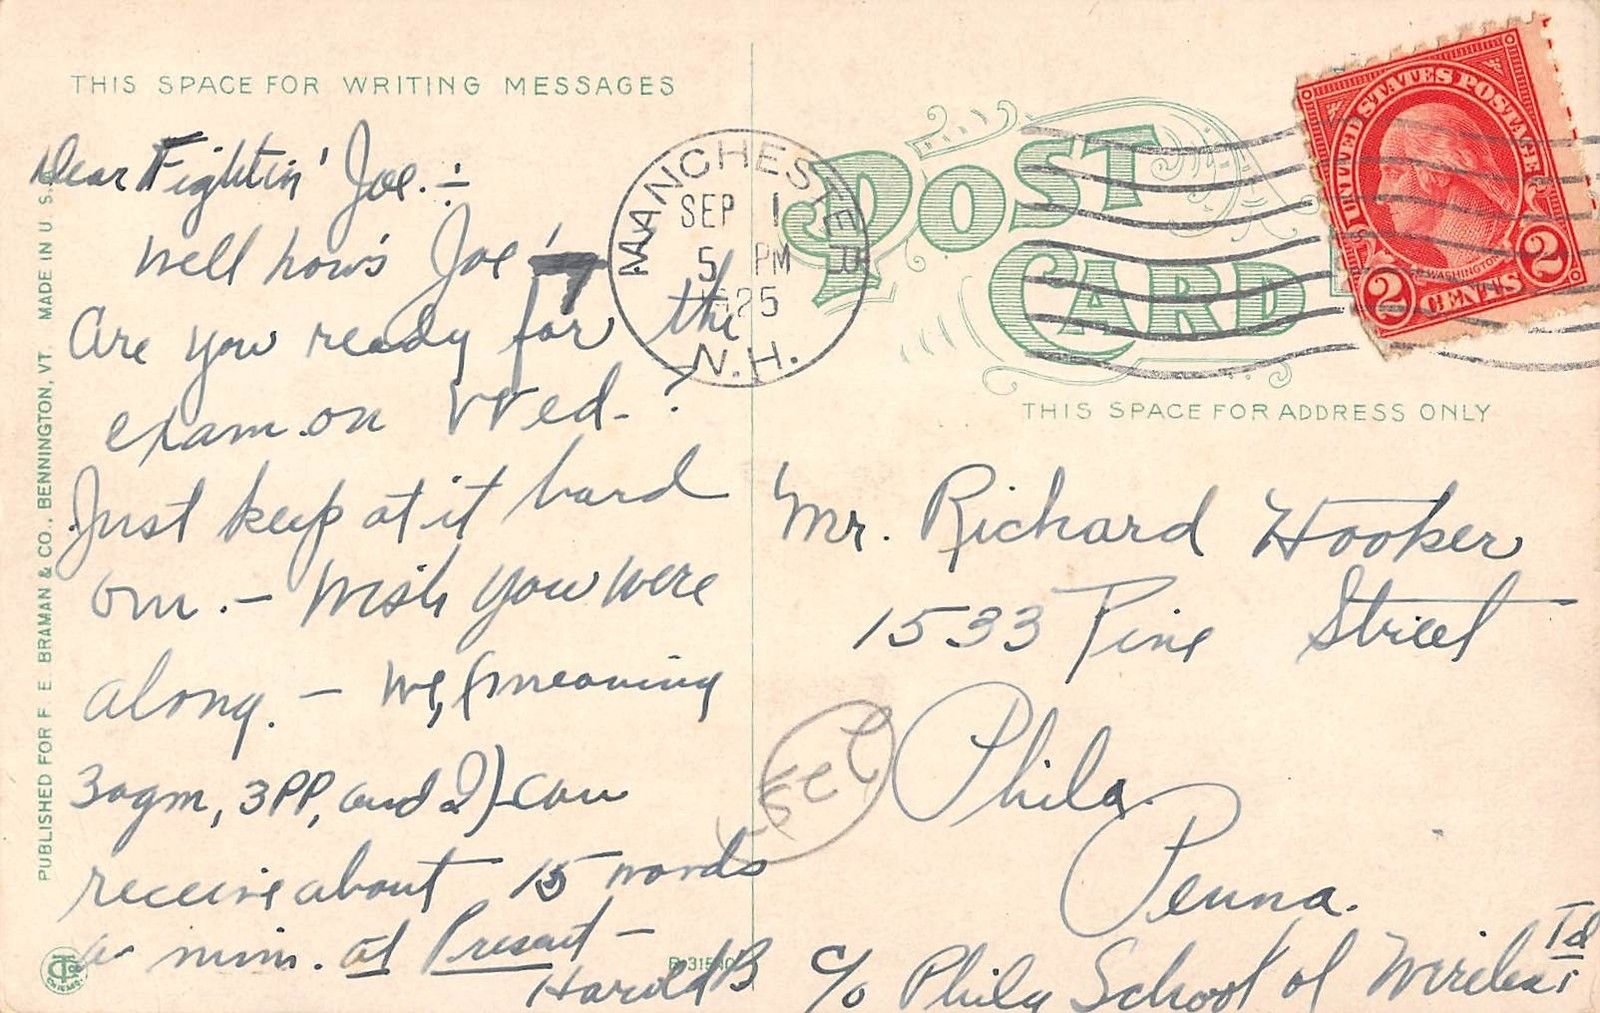 THIS SPACE FOR WRITING MESSAGES
Dear Fightin' Joe. :-
Well how's Joe!
Are you ready for the
exam. on Wed-?
Just keep at it hard
om. - Wish you were
along. - We, (meaning
3agm, 3PP, and I) can
receive about 15 words
a min. at Present -
Harold B
PUBLISHED FOR F E BRAMAN & CO., BENNINGTON, VT. MADE IN U. S.
CHICAGO
MANCHESTER
SEP 1
5 PM
1925
N.H.
POST
CARD
UNITED STATES POSTAGE
WASHINGTON
2 CENTS 2
THIS SPACE FOR ADDRESS ONLY
Mr. Richard Hooker
1533 Pine Street
Phila.
Penna.
c/o Phila School of Wireless